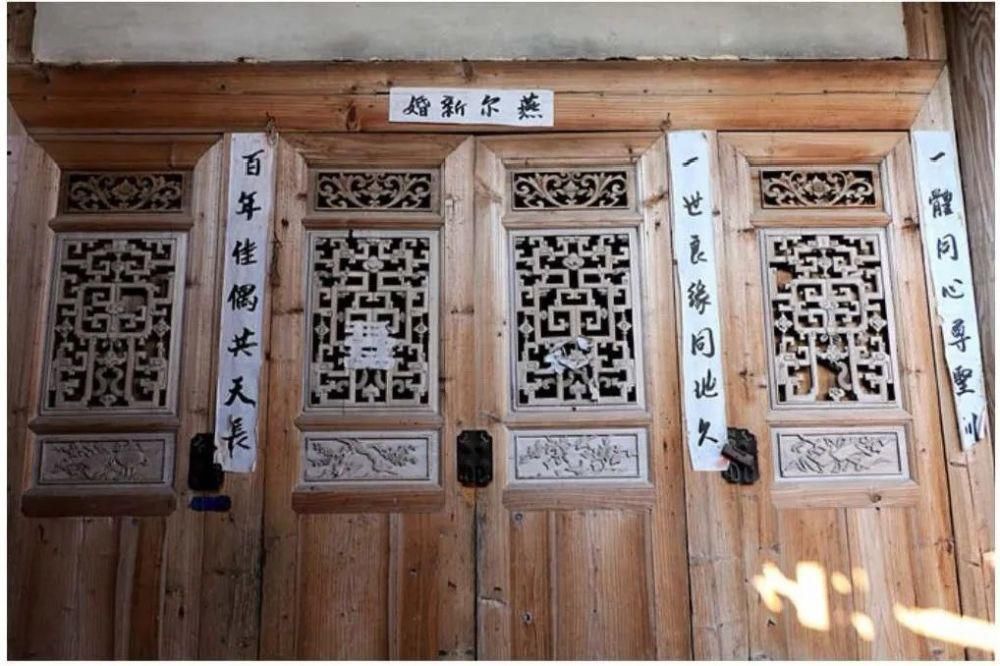 燕尔新婚
一體同心尊聖
一世良缘同地久
百年佳偶共天長